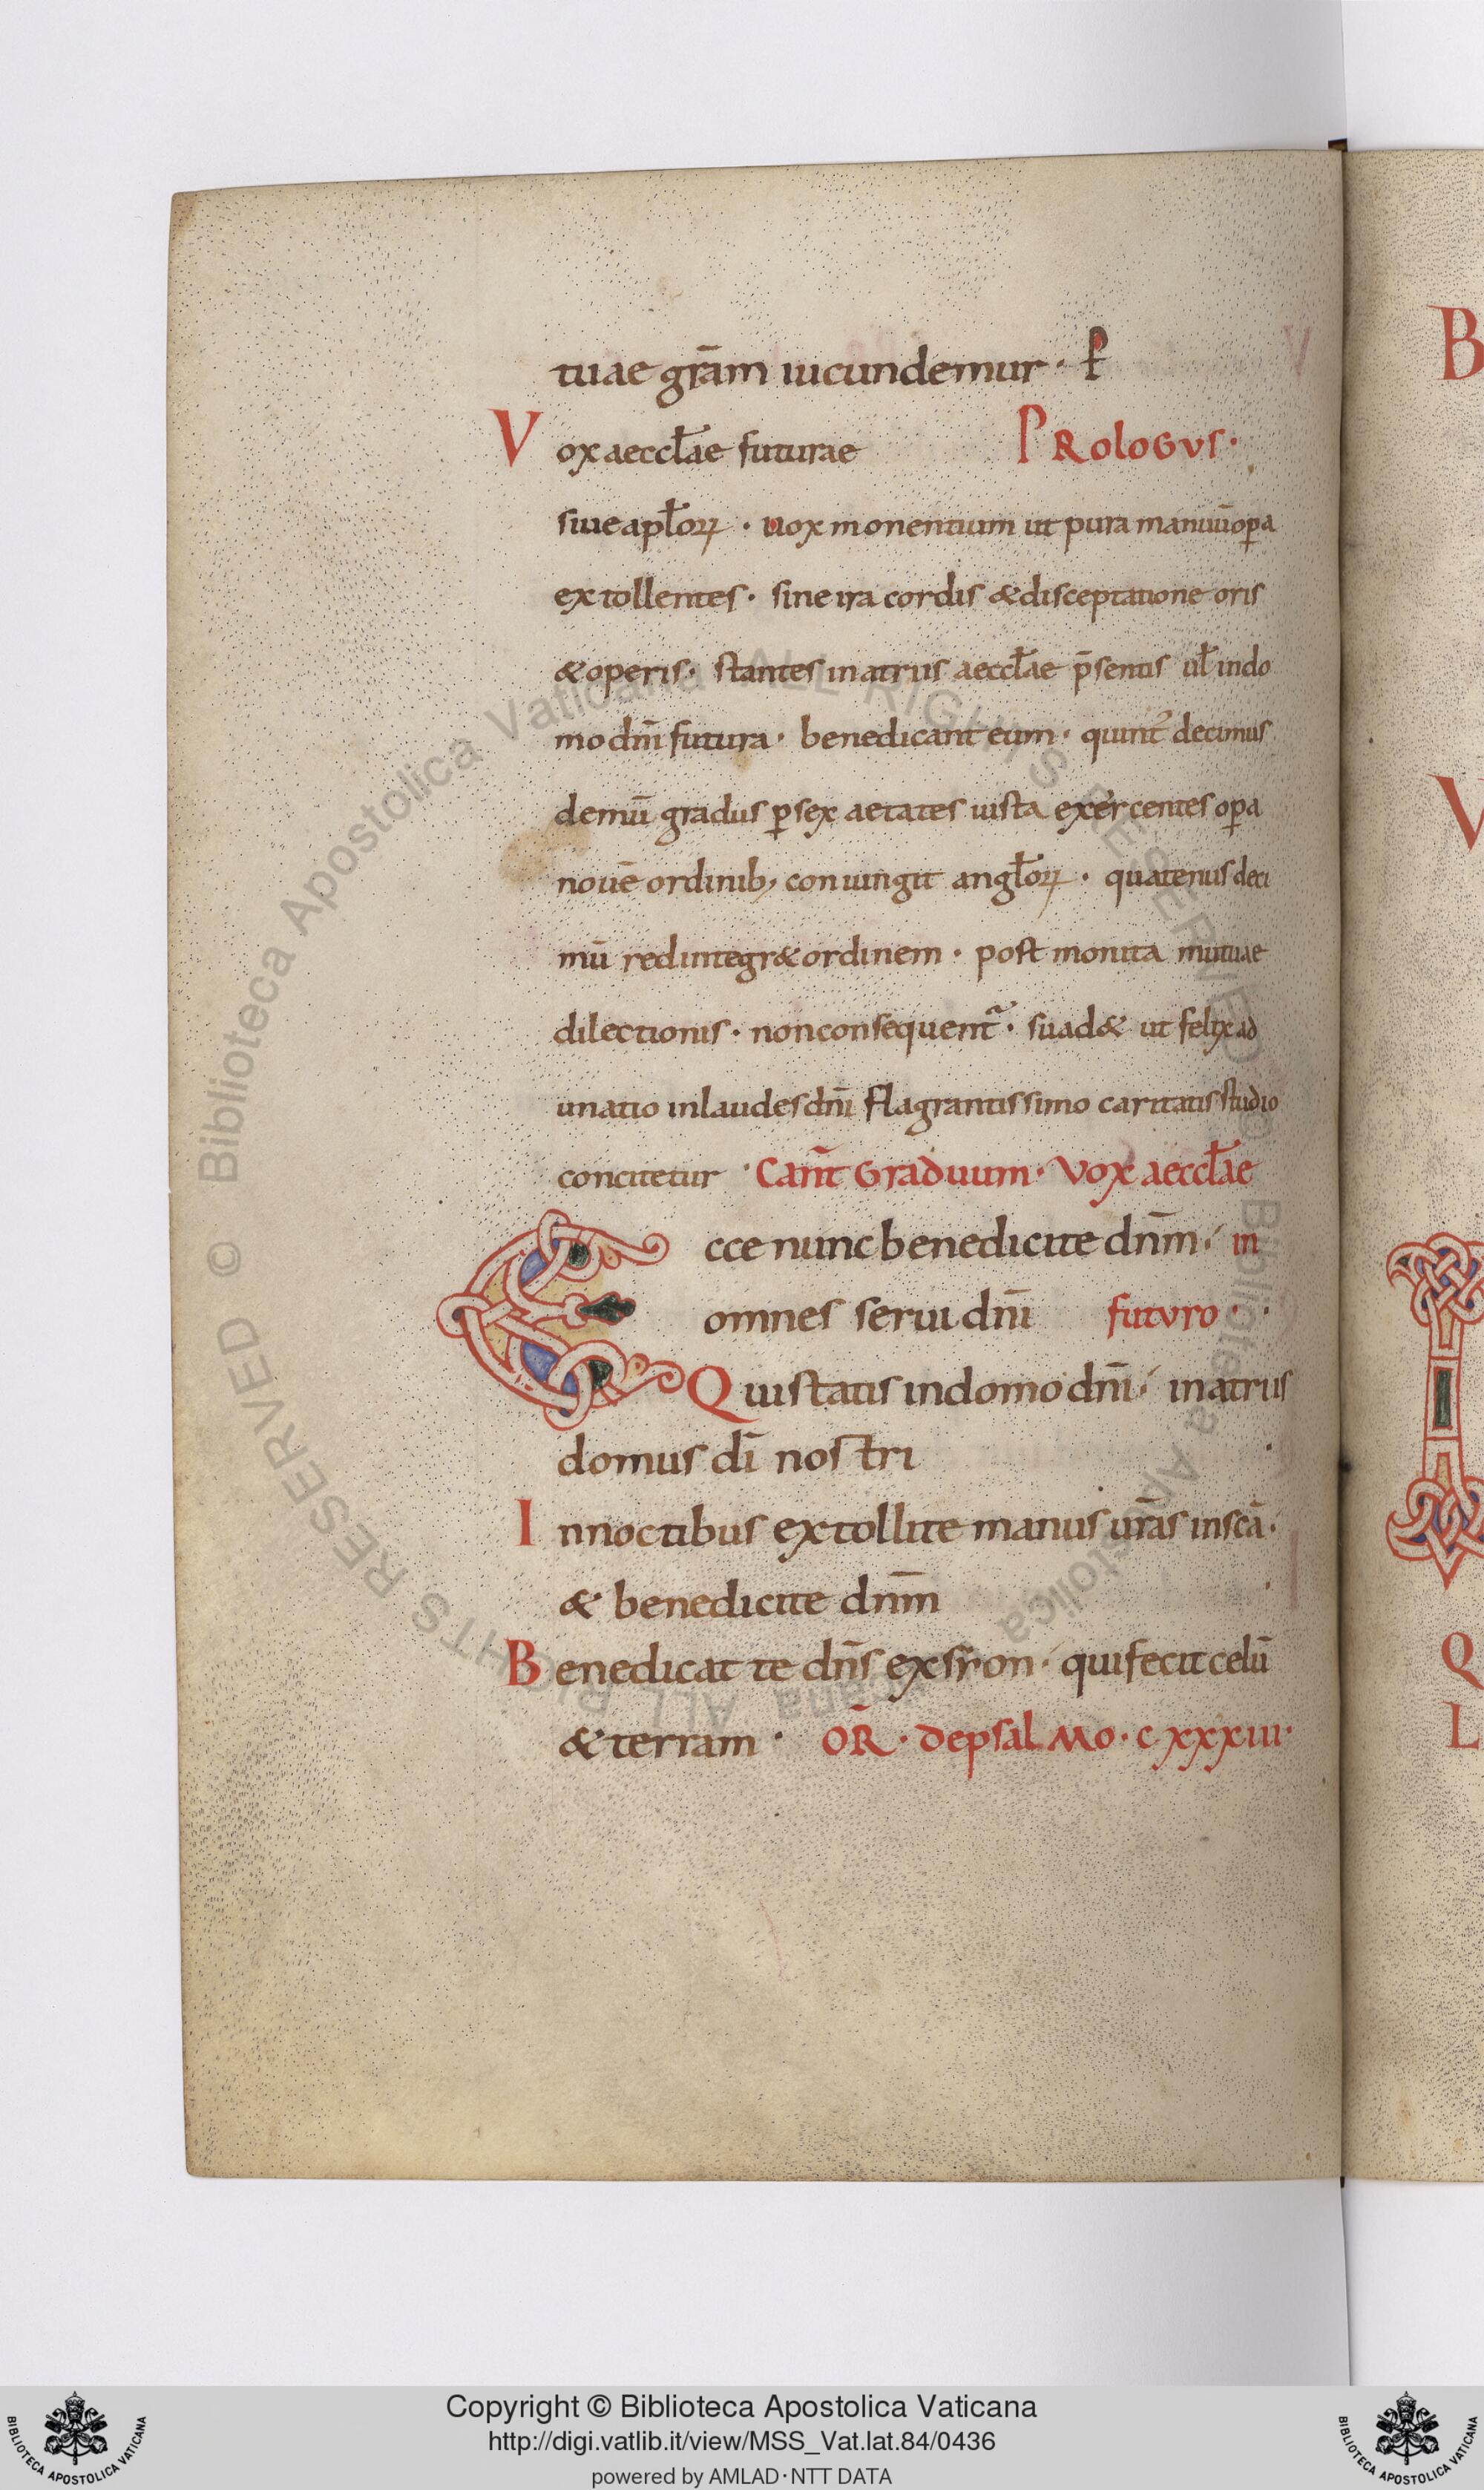 tuae grām iucundemur · ꝑ
Vox aeccl̄ae futurae PRologus ·
siue apl̄oꝝ · uox monentium ut pura manuū oꝑa
extollentes · sine ira cordis & disceptatione oris
& operis · stantes in atriis aeccl̄ae p̄sentis ul̄ in do
mo dn̄i futura · benedicant eum · quint᷒ decimus
demū gradus ꝑ sex aetates iusta exercentes oꝑa
nouē ordinib; coniungit angl̄oꝝ · quatenus deci
mū redintegr& ordinem · post monita mutuae
dilectionis · non consequent᷑ · suad& ut felix ad
unatio in laudes dn̄i flagrantissimo caritatis studio
concitetur · Can̄t Graduum · Vox aeccl̄ae
Ecce nunc benedicite dn̄m · in
omnes serui dn̄i futuro ·
Qui statis in domo dn̄i · in atriis
domus dī nostri
In noctibus extollite manus ur̄as in scā ·
& benedicite dn̄m
Benedicat te dn̄s ex sȳon · qui fecit celū
& terram · OR̄ · de psalMo · cxxxiii ·
B
V
I
Q
L
© Biblioteca Apostolica Vaticana ALL RIGHTS RESERVED © Biblioteca Apostolica Vaticana ALL RIGHTS RESERVED
Copyright © Biblioteca Apostolica Vaticana
http://digi.vatlib.it/view/MSS_Vat.lat.84/0436
powered by AMLAD·NTT DATA
BIBLIOTECA APOSTOLICA VATICANA
BIBLIOTECA APOSTOLICA VATICANA